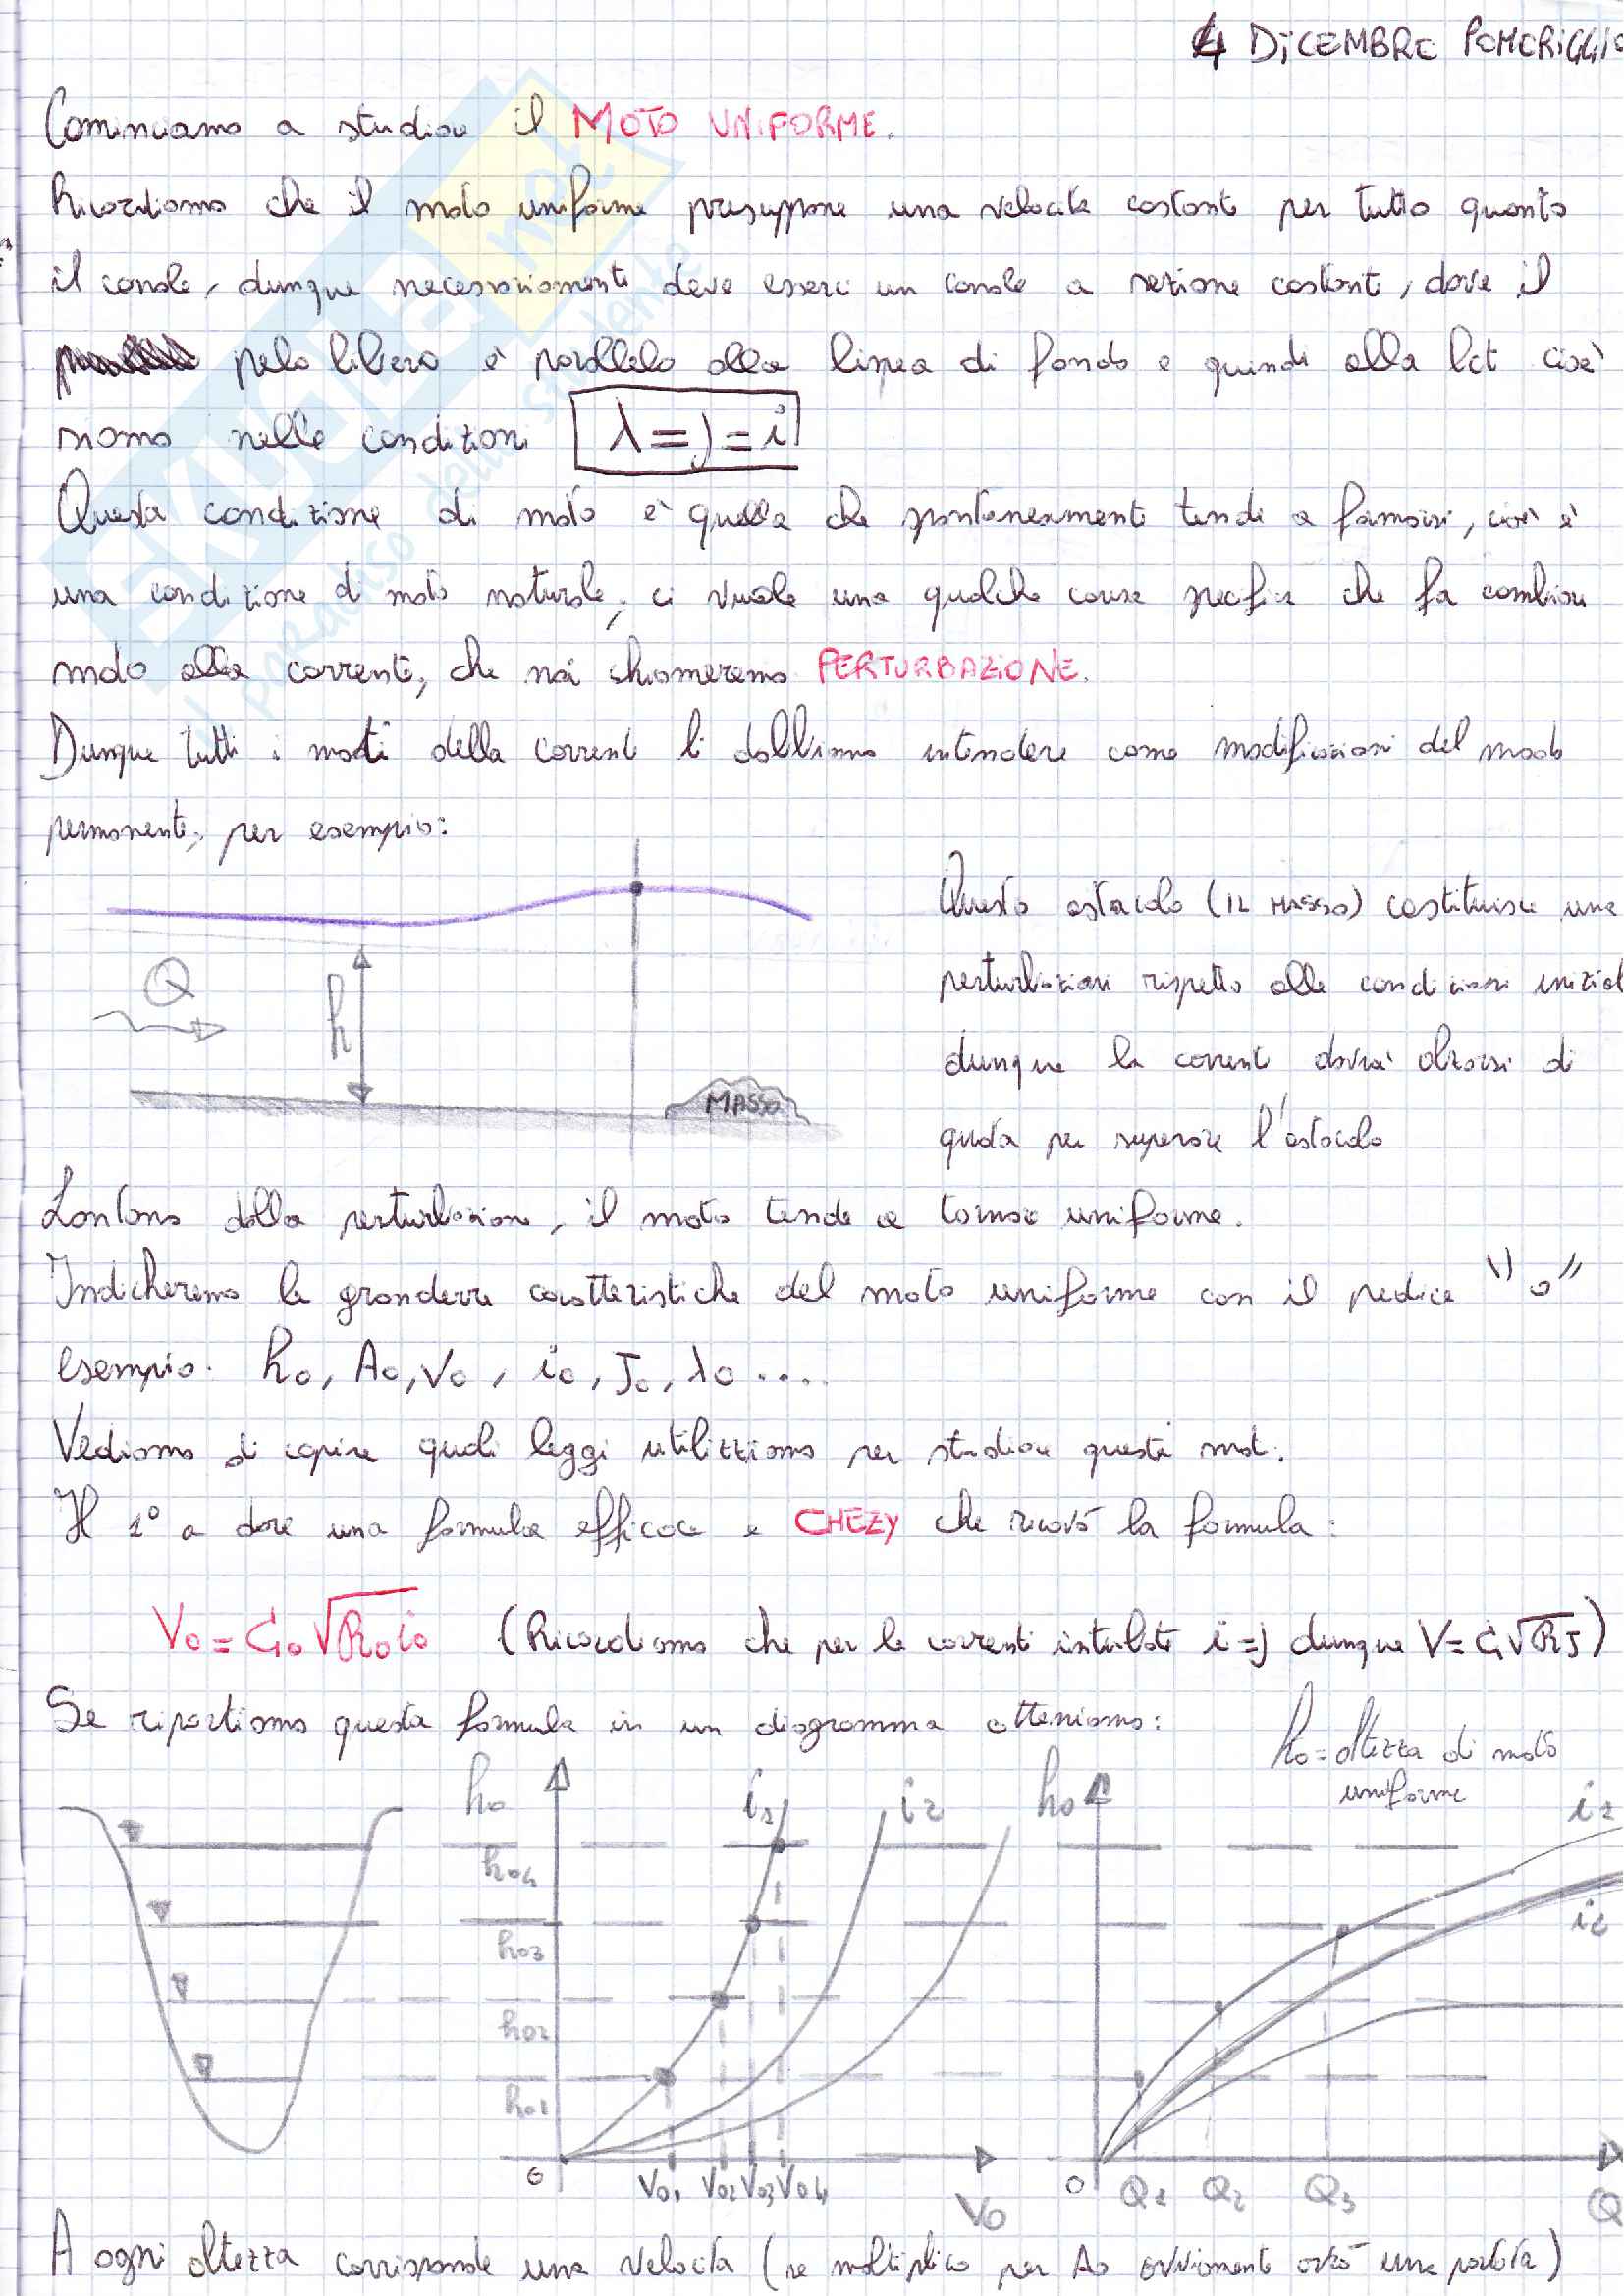 4 DICEMBRE POMERIGGIO
Cominciamo a studiare il MOTO UNIFORME.
Ricordiamo che il moto uniforme presuppone una velocità costante per tutto quanto
il canale, dunque necessariamente deve esserci un canale a sezione costante, dove il
pelo libero è parallelo alla linea di fondo e quindi alla lct cioè
siamo nelle condizioni λ=j=i
Questa condizione di moto è quella che spontaneamente tende a formarsi, cioè è
una condizione di moto naturale, ci vuole una qualche causa specifica che fa cambiare
modo alla corrente, che noi chiameremo PERTURBAZIONE.
Dunque tutti i moti della corrente li dobbiamo intendere come modificazioni del modo
permanente, per esempio:
Questo ostacolo (IL MASSO) costituisce una
perturbazioni rispetto alle condizioni inizial
dunque la corrente dovrà alzarsi di
quota per superare l'ostacolo
Q
h
MASSO
Lontano dalla perturbazione, il moto tende a tornare uniforme.
Indicheremo le grandezze caratteristiche del moto uniforme con il pedice "o"
esempio. ho, Ao, Vo, io, Jo, λo ....
Vediamo di capire quali leggi utilizziamo per studiare questi moti.
Il 1° a dare una formula efficace e CHEZY che ricavò la formula:
Vo = Co√Roio (Ricordiamo che per le correnti intubate i=j dunque V=C√RJ)
Se riportiamo questa formula in un diagramma otteniamo:
ho=altezza di moto
uniforme
ho i1 i2 ho i2
ho4
ho3 i2
ho2
ho1
0 Vo1 Vo2 Vo3 Vo4 Vo 0 Q1 Q2 Q3 Q
A ogni altezza corrisponde una velocità (se moltiplico per Ao ovviamente avrò una portata)
il paradiso dello studente
SKUOLA.net